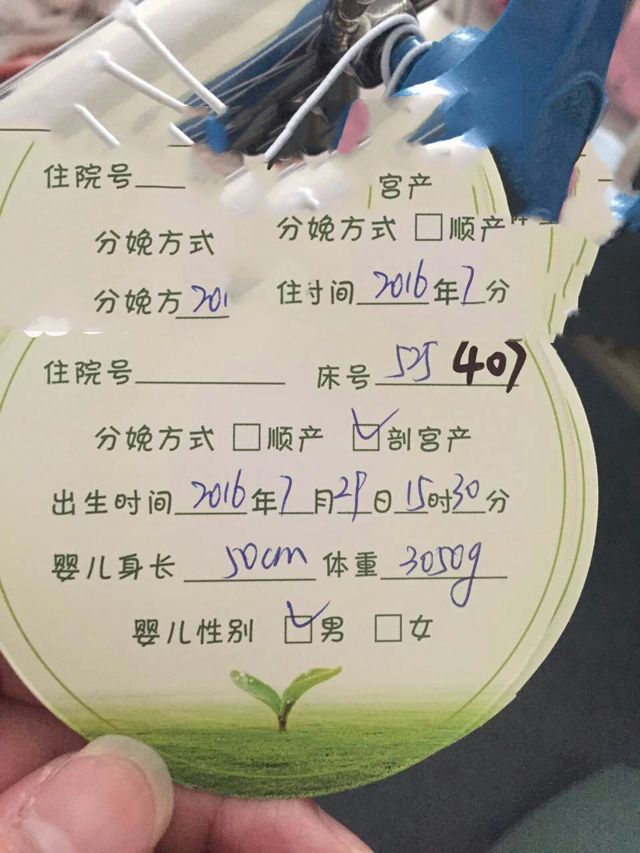 住院号
宫产
分娩方式 分娩方式 □顺产
分娩方 201 住寸间 2016年7分
住院号 床号 525 407
分娩方式 □顺产 ☑剖宫产
出生时间 2016年7月29日15时30分
婴儿身长 50cm 体重 3050g
婴儿性别 ☑男 □女